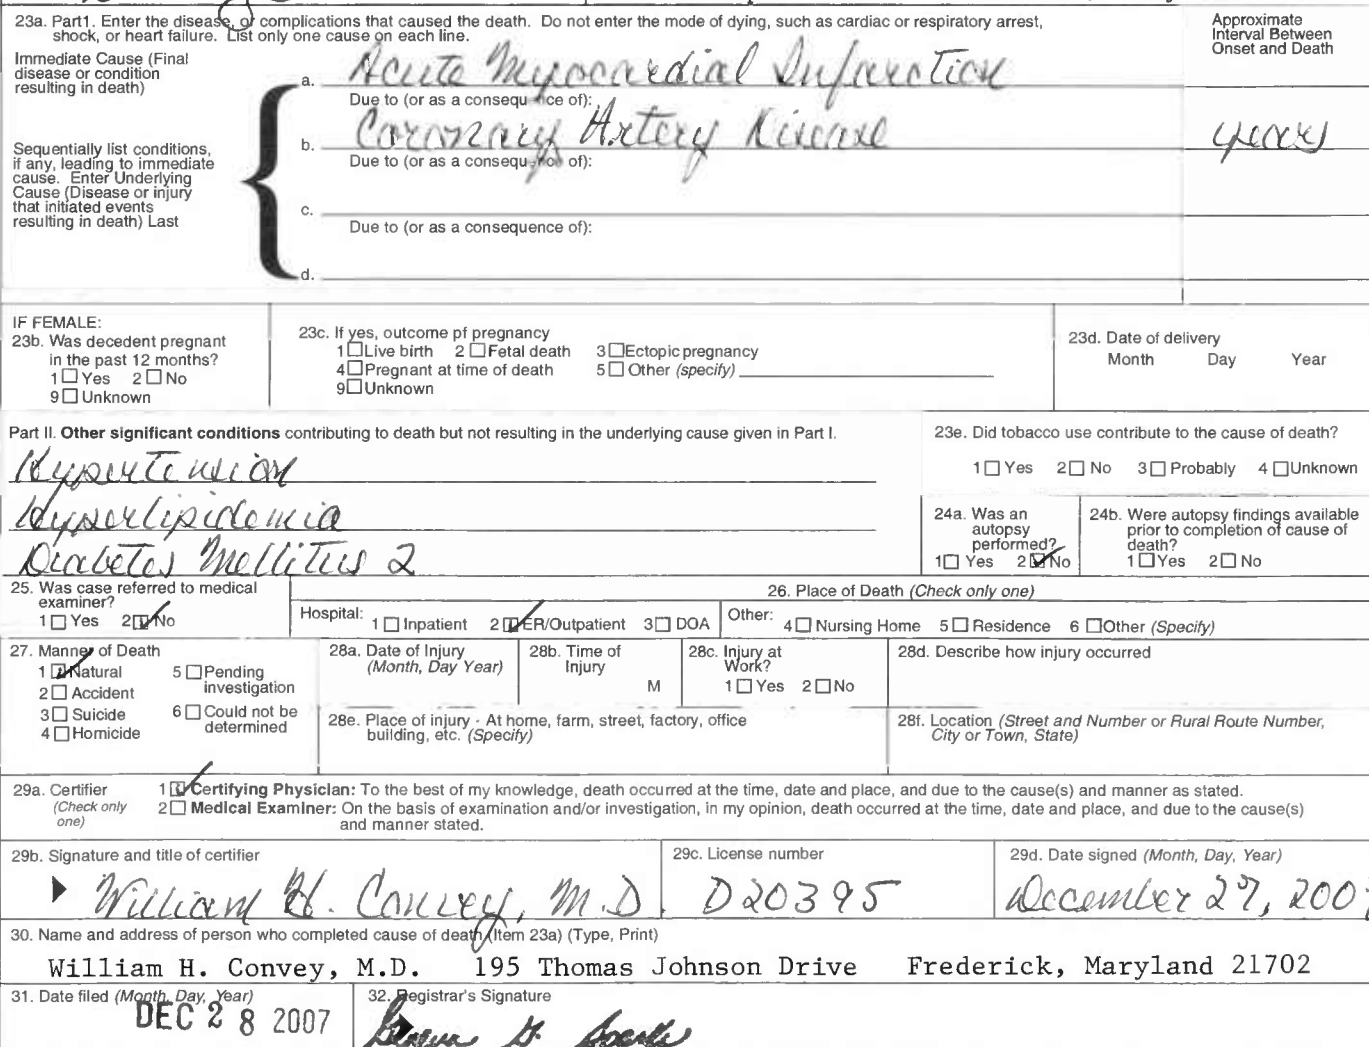 23a. Part1. Enter the disease, or complications that caused the death. Do not enter the mode of dying, such as cardiac or respiratory arrest,
shock, or heart failure. List only one cause on each line.
Approximate
Interval Between
Onset and Death
Immediate Cause (Final
disease or condition
resulting in death)
a. Acute Myocardial Infarction
Due to (or as a consequence of):
Sequentially list conditions,
if any, leading to immediate
cause. Enter Underlying
Cause (Disease or injury
that initiated events
resulting in death) Last
b. Coronary Artery Disease years
Due to (or as a consequence of):
c.
Due to (or as a consequence of):
d.
IF FEMALE:
23b. Was decedent pregnant
in the past 12 months?
1 Yes 2 No
9 Unknown
23c. If yes, outcome pf pregnancy
1 Live birth 2 Fetal death 3 Ectopic pregnancy
4 Pregnant at time of death 5 Other (specify)
9 Unknown
23d. Date of delivery
Month Day Year
Part II. Other significant conditions contributing to death but not resulting in the underlying cause given in Part I.
Hypertension
Hyperlipidemia
Diabetes Mellitus 2
23e. Did tobacco use contribute to the cause of death?
1 Yes 2 No 3 Probably 4 Unknown
24a. Was an
autopsy
performed?
1 Yes 2 No
24b. Were autopsy findings available
prior to completion of cause of
death?
1 Yes 2 No
25. Was case referred to medical
examiner?
1 Yes 2 No
26. Place of Death (Check only one)
Hospital: 1 Inpatient 2 ER/Outpatient 3 DOA Other: 4 Nursing Home 5 Residence 6 Other (Specify)
27. Manner of Death
1 Natural 5 Pending
investigation
2 Accident
3 Suicide 6 Could not be
determined
4 Homicide
28a. Date of Injury
(Month, Day Year)
28b. Time of
Injury
M
28c. Injury at
Work?
1 Yes 2 No
28d. Describe how injury occurred
28e. Place of injury - At home, farm, street, factory, office
building, etc. (Specify)
28f. Location (Street and Number or Rural Route Number,
City or Town, State)
29a. Certifier
(Check only
one)
1 Certifying Physician: To the best of my knowledge, death occurred at the time, date and place, and due to the cause(s) and manner as stated.
2 Medical Examiner: On the basis of examination and/or investigation, in my opinion, death occurred at the time, date and place, and due to the cause(s)
and manner stated.
29b. Signature and title of certifier
William H. Convey, M.D.
29c. License number
D20395
29d. Date signed (Month, Day, Year)
December 27, 2007
30. Name and address of person who completed cause of death (Item 23a) (Type, Print)
William H. Convey, M.D. 195 Thomas Johnson Drive Frederick, Maryland 21702
31. Date filed (Month, Day, Year)
DEC 28 2007
32. Registrar's Signature